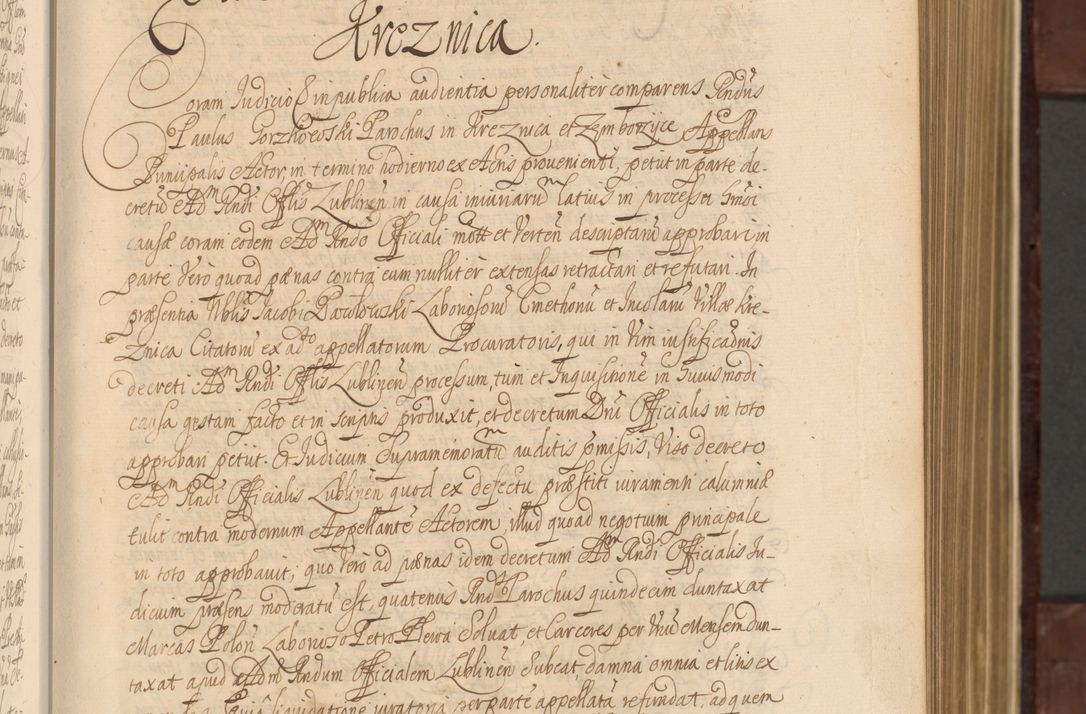 Kreznica.
Coram Judicio & in publica audientia personaliter comparens Rndus
Paulus Gorzkowski Parochus in Kreznica et Zymborzyce Appellans
Principalis Actor, in termino hodierno ex Actis provenienti, petiit in parte de-
cretū Adm Rndi Offlis Lublinen in causa iniuriarum latius in processu huisi
causæ coram eodem Adm Rndo Officiali mott et verten descriptarū approbari in
parte Vero quoad pœnas contra eum nulliter extensas retractari et refutari. In
præsentia Nblis Jacobi Pawlowski Laboriosorū Cmethonū et Incolarū Villæ Kre-
znica Citatorū ex adto appellatorum Procuratoris, qui in Vim iustificaõnis
decreti Adm Rndi Offlis Lublinen processum, tum et Inquisitione in huiusmodi
causa gestam facto et in scriptis produxit, et decretum Dni Officialis in toto
approbari petiit. Et Judicium Supramemoratum auditis pmissis, Viso decreto
Adm Rndi Officialis Lublinen quod ex defectu præstiti iuramenti calumniæ
tulit contra modernum Appellantē Actorem illud quoad negotium principale
in toto approbauit; quo Vero ad pœnas idem decretum Adm Rndi Officialis Ju-
dicium præsens moderatū est, quatenus Rndus Parochus quindecim duntaxat
Marcas Polon Laborioso Petro Plewa Soluat, et Carceres per Vnū Mensem dun-
taxat apud Adm Rndum Officialem Lublinen Subeat, damna omnia et litis ex
liquidatione iuratoria per parte appellatā refundat, ad quem